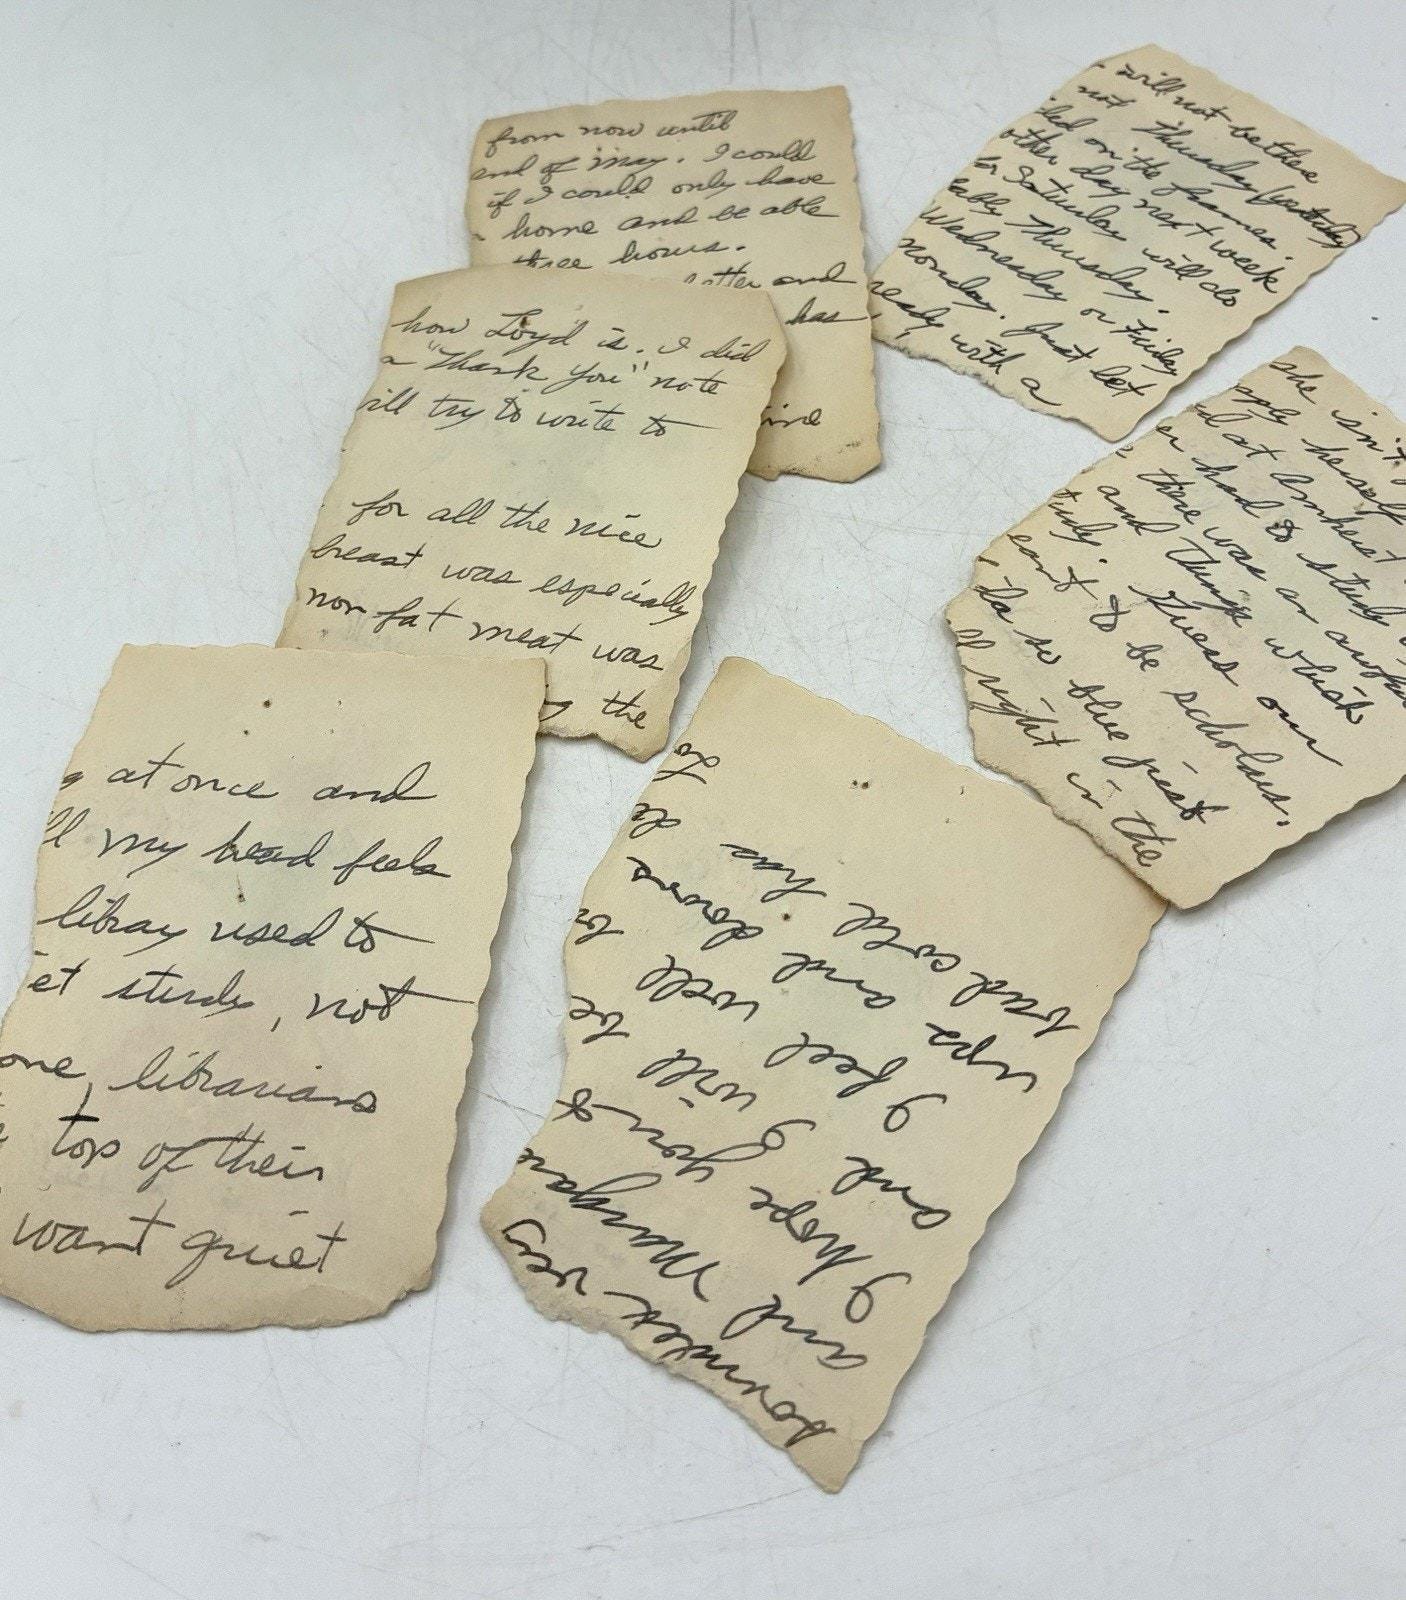 from now until
end of May. I could
if I could only have
home and be able
three hours.
letter and
has
will not be there
not Thursday (yesterday
on the frames.
other day next week
or Saturday will do
Thursday.
Wednesday or Friday
Monday. Just let
ready with a
how Loyd is. I did
a "Thank You" note
ill try to write to
for all the nice
breast was especially
nor fat meat was
the
she isn't
herself
d at Amherst
er had to study
there was an
and things which
study. Guess our
eant to be scholars.
da so blue jeast
ll right in the
at once and
ll my head feels
libray used to
et study, not
one, librarians
top of their
want quiet
bad cold has
ups and downs de
I feel well to
and I will be
I hope you &
and Margare
very